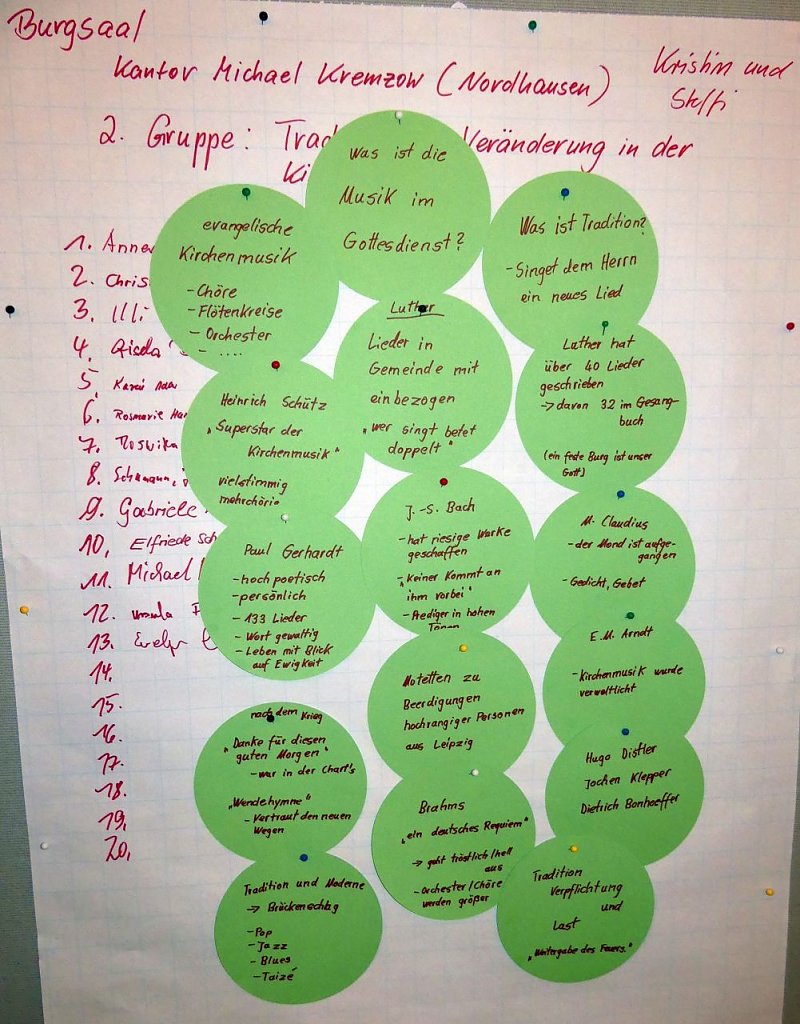 Burgsaal
Kantor Michael Kremzow (Nordhausen)
Kristin und
Steffi
2. Gruppe: Trad Veränderung in der
Ki
1. Anne
2. Chris
3. Illi
4. Gisela
5.
6. Rosmarie Ha
7. Roswika
8.
9. Gabriele
10. Elfriede Sch
11. Michael
12. Ursula
13. Evelyn
14.
15.
16.
17.
18.
19.
20.
Was ist die
Musik im
Gottesdienst?
evangelische
Kirchenmusik
- Chöre
- Flötenkreise
- Orchester
- ....
Was ist Tradition?
- Singet dem Herrn
ein neues Lied
Luther
Lieder in
Gemeinde mit
einbezogen
"wer singt betet
doppelt"
Luther hat
über 40 Lieder
geschrieben
-> davon 32 im Gesang-
buch
(ein feste Burg ist unser
Gott)
Heinrich Schütz
"Superstar der
Kirchenmusik"
vielstimmig
mehrchörig
J.-S. Bach
- hat riesige Werke
geschaffen
- "Keiner kommt an
ihm vorbei"
- Prediger in hohen
Tönen
M. Claudius
- der Mond ist aufge-
gangen
- Gedicht, Gebet
Paul Gerhardt
- hoch poetisch
- persönlich
- 133 Lieder
- Wort gewaltig
- Leben mit Blick
auf Ewigkeit
E.M. Arndt
- Kirchenmusik wurde
verweltlicht
Motetten zu
Beerdigungen
hochrangiger Personen
aus Leipzig
nach dem Krieg
"Danke für diesen
guten Morgen"
- war in der Chart's
"Wendehymne"
- Vertraut den neuen
Wegen
Hugo Distler
Jochen Klepper
Dietrich Bonhoeffer
Brahms
"ein deutsches Requiem"
-> geht tröstlich/hell
aus
- Orchester/Chöre
werden größer
Tradition und Moderne
-> Brückenschlag
- Pop
- Jazz
- Blues
- Taizé
Tradition
Verpflichtung
und
Last
"Weitergabe des Feuers."